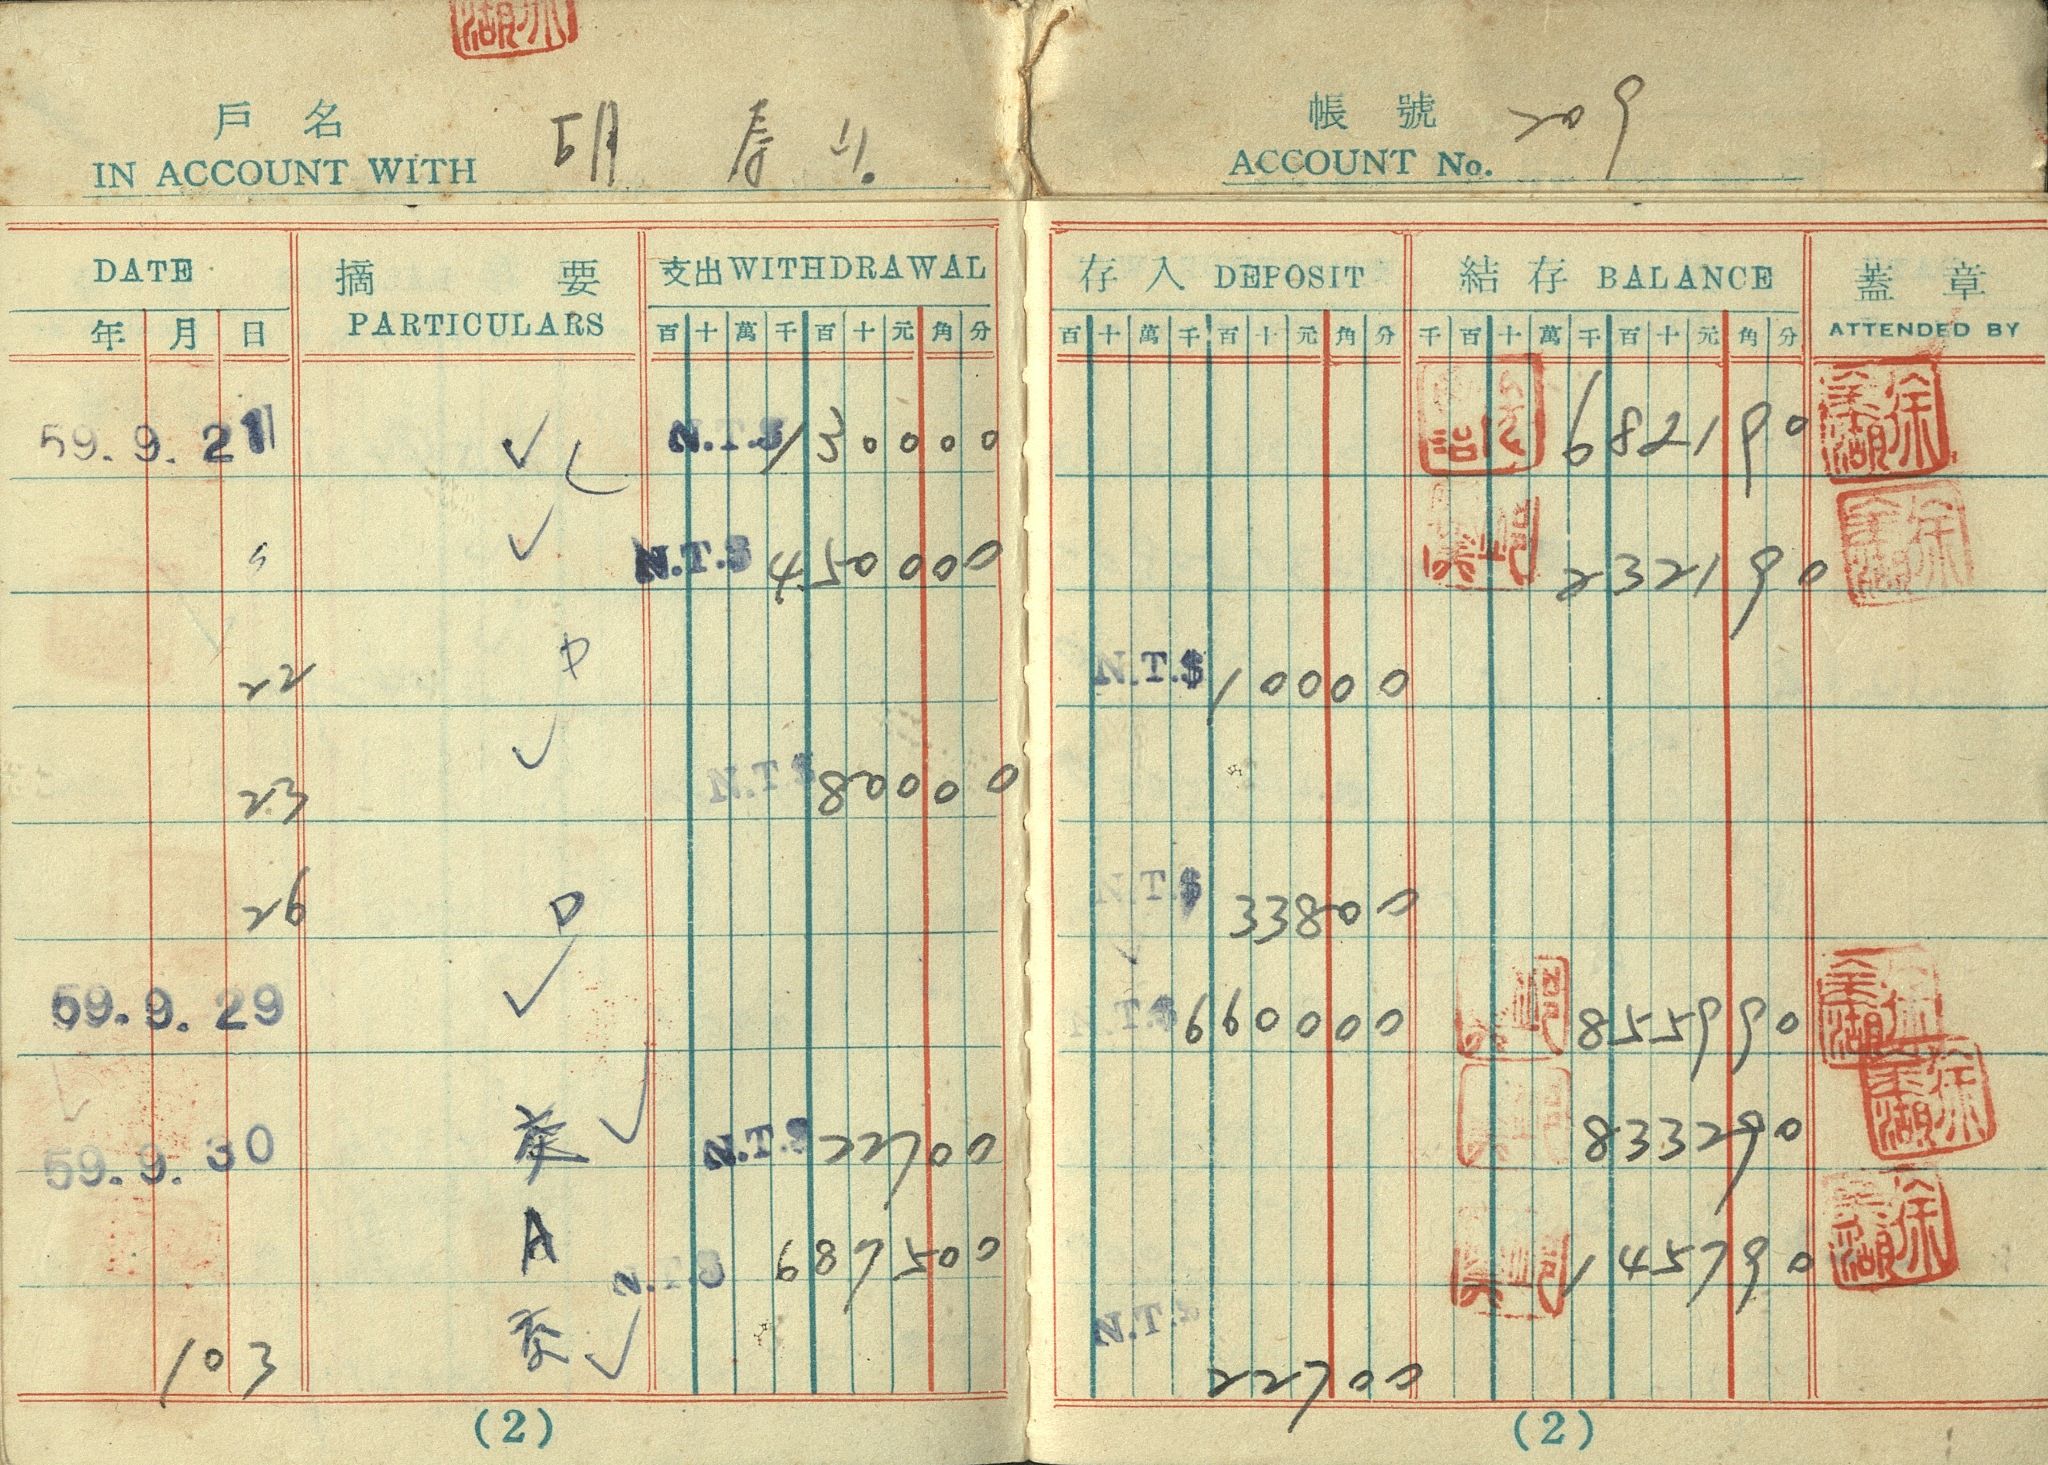 戶 名
IN ACCOUNT WITH
帳 號
ACCOUNT No. 209
DATE 摘 要 支出 WITHDRAWAL 存 入 DEPOSIT 結 存 BALANCE 蓋 章
年 月 日 PARTICULARS 百 十 萬 千 百 十 元 角 分 百 十 萬 千 百 十 元 角 分 千 百 十 萬 千 百 十 元 角 分 ATTENDED BY
59.9.21 N.T.$ 130000 682190
〃 N.T.$ 450000 232190
22 N.T.$ 10000
23 N.T.$ 80000
26 D N.T.$ 33800
59.9.29 N.T.$ 660000 855990
59.9.30 N.T.$ 22700 833290
A N.T.$ 687500 145790
10 3 N.T.$ 22700
(2) (2)